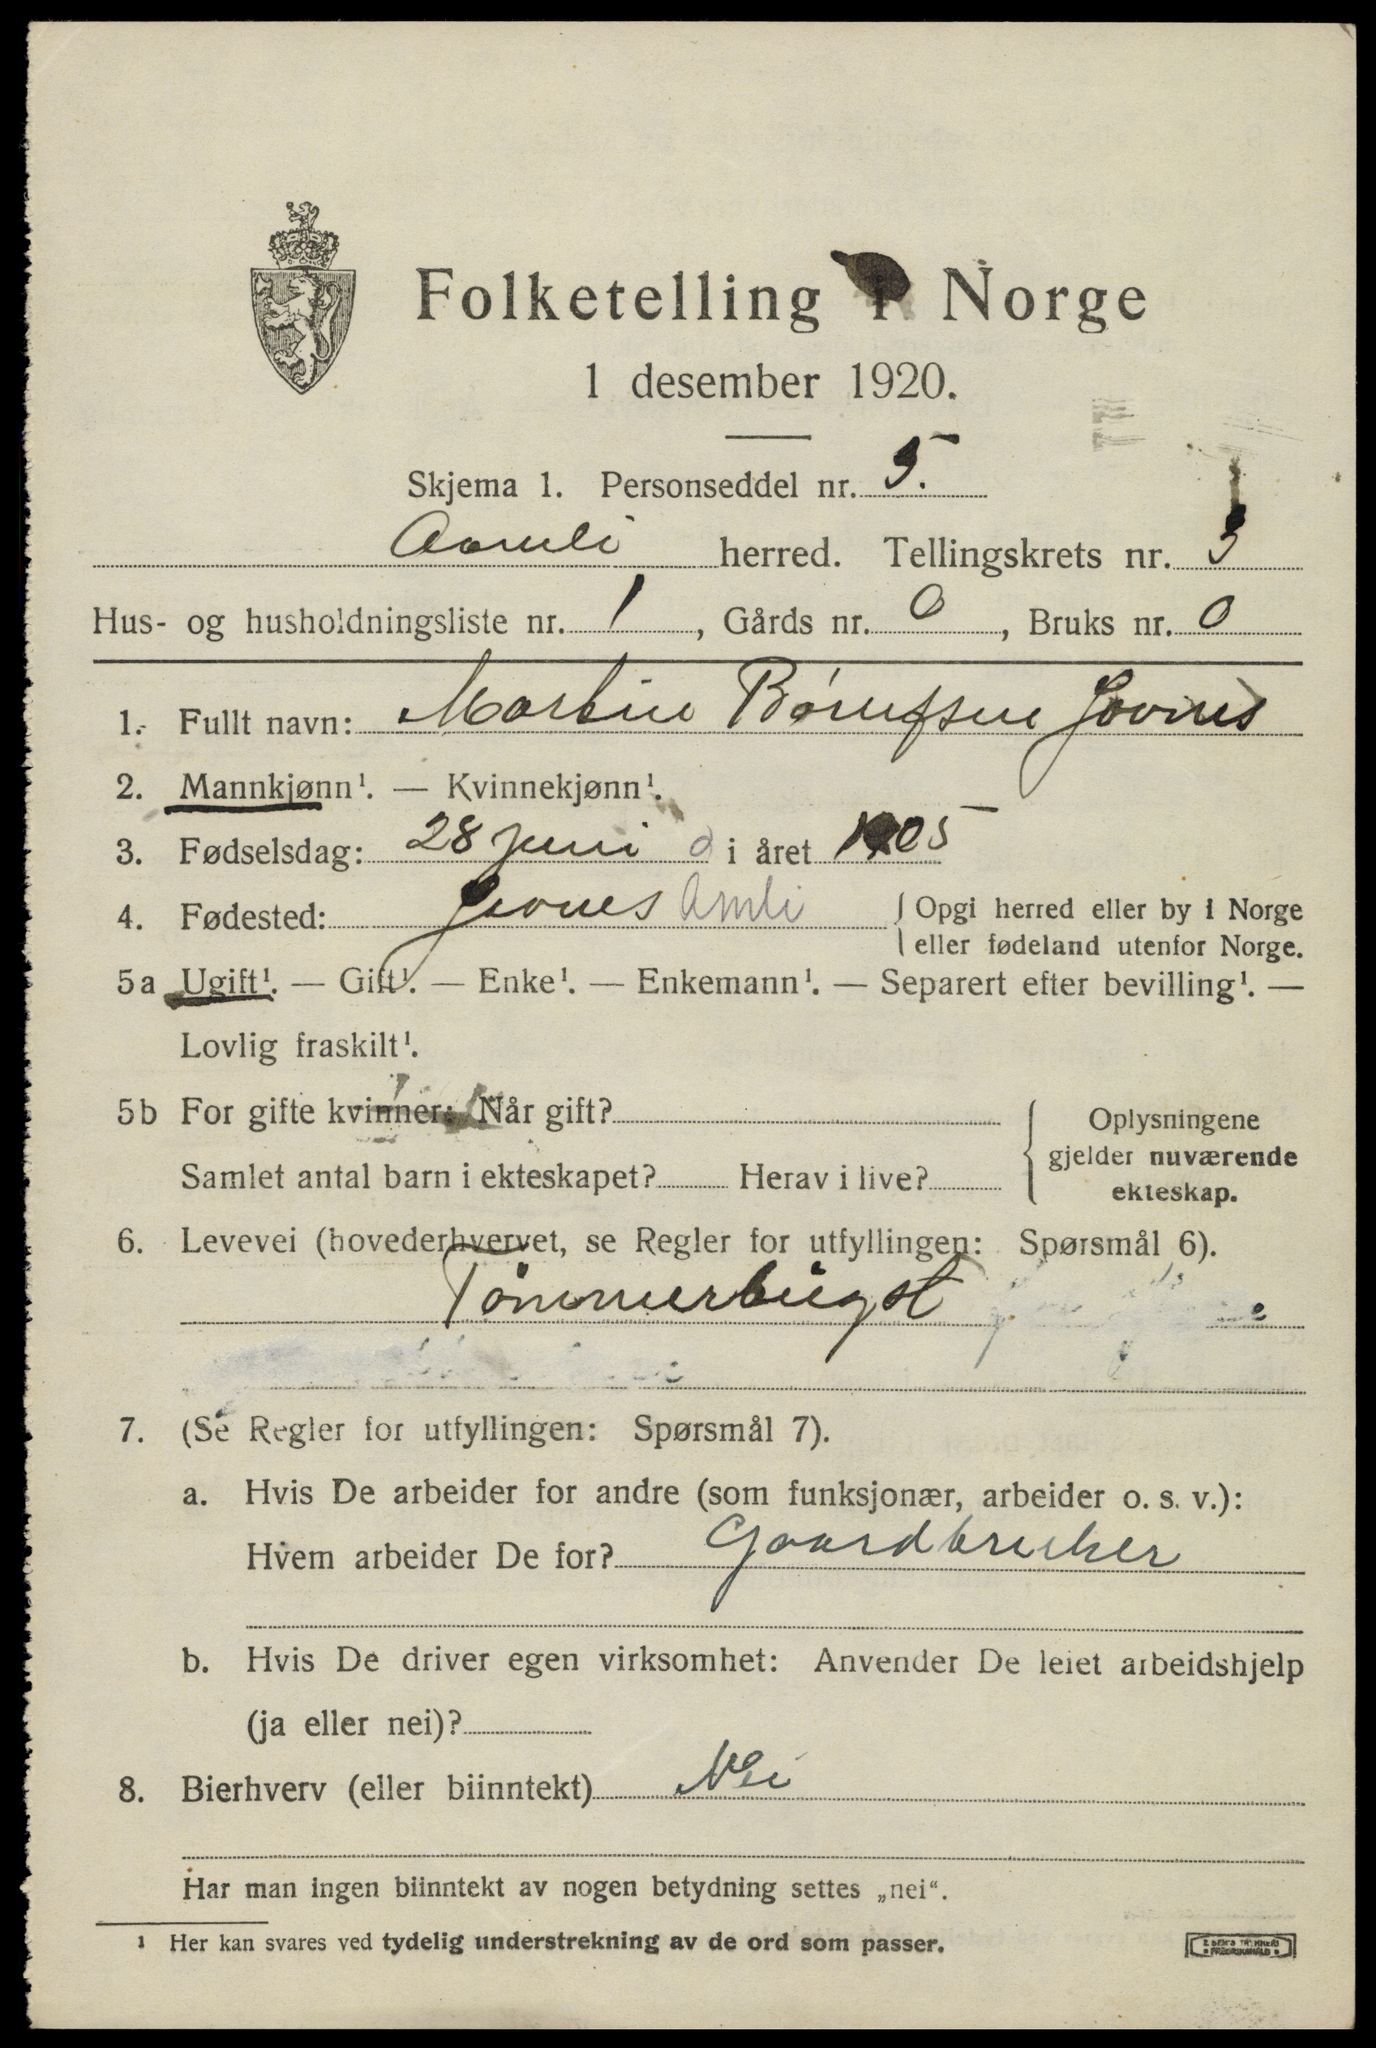 Folketelling i Norge
1 desember 1920.
Skjema 1. Personseddel nr. 5.
Aamli herred. Tellingskrets nr. 3
Hus- og husholdningsliste nr. 1, Gårds nr. 0, Bruks nr. 0
1. Fullt navn: Martin Børufsen Jovnes
2. Mannkjønn¹. — Kvinnekjønn¹.
3. Fødselsdag: 28 juni i året 1905
4. Fødested: Jovnes Amli { Opgi herred eller by i Norge
eller fødeland utenfor Norge.
5a Ugift¹. — Gift¹. — Enke¹. — Enkemann¹. — Separert efter bevilling¹. —
Lovlig fraskilt¹.
5b For gifte kvinner: Når gift?
Samlet antal barn i ekteskapet? Herav i live?
{ Oplysningene
gjelder nuværende
ekteskap.
6. Levevei (hovederhvervet, se Regler for utfyllingen: Spørsmål 6).
Tømmerhugst
7. (Se Regler for utfyllingen: Spørsmål 7).
a. Hvis De arbeider for andre (som funksjonær, arbeider o. s. v.):
Hvem arbeider De for? Gaardbruker
b. Hvis De driver egen virksomhet: Anvender De leiet arbeidshjelp
(ja eller nei)?
8. Bierhverv (eller biinntekt) Nei
Har man ingen biinntekt av nogen betydning settes „nei“.
¹ Her kan svares ved tydelig understrekning av de ord som passer.